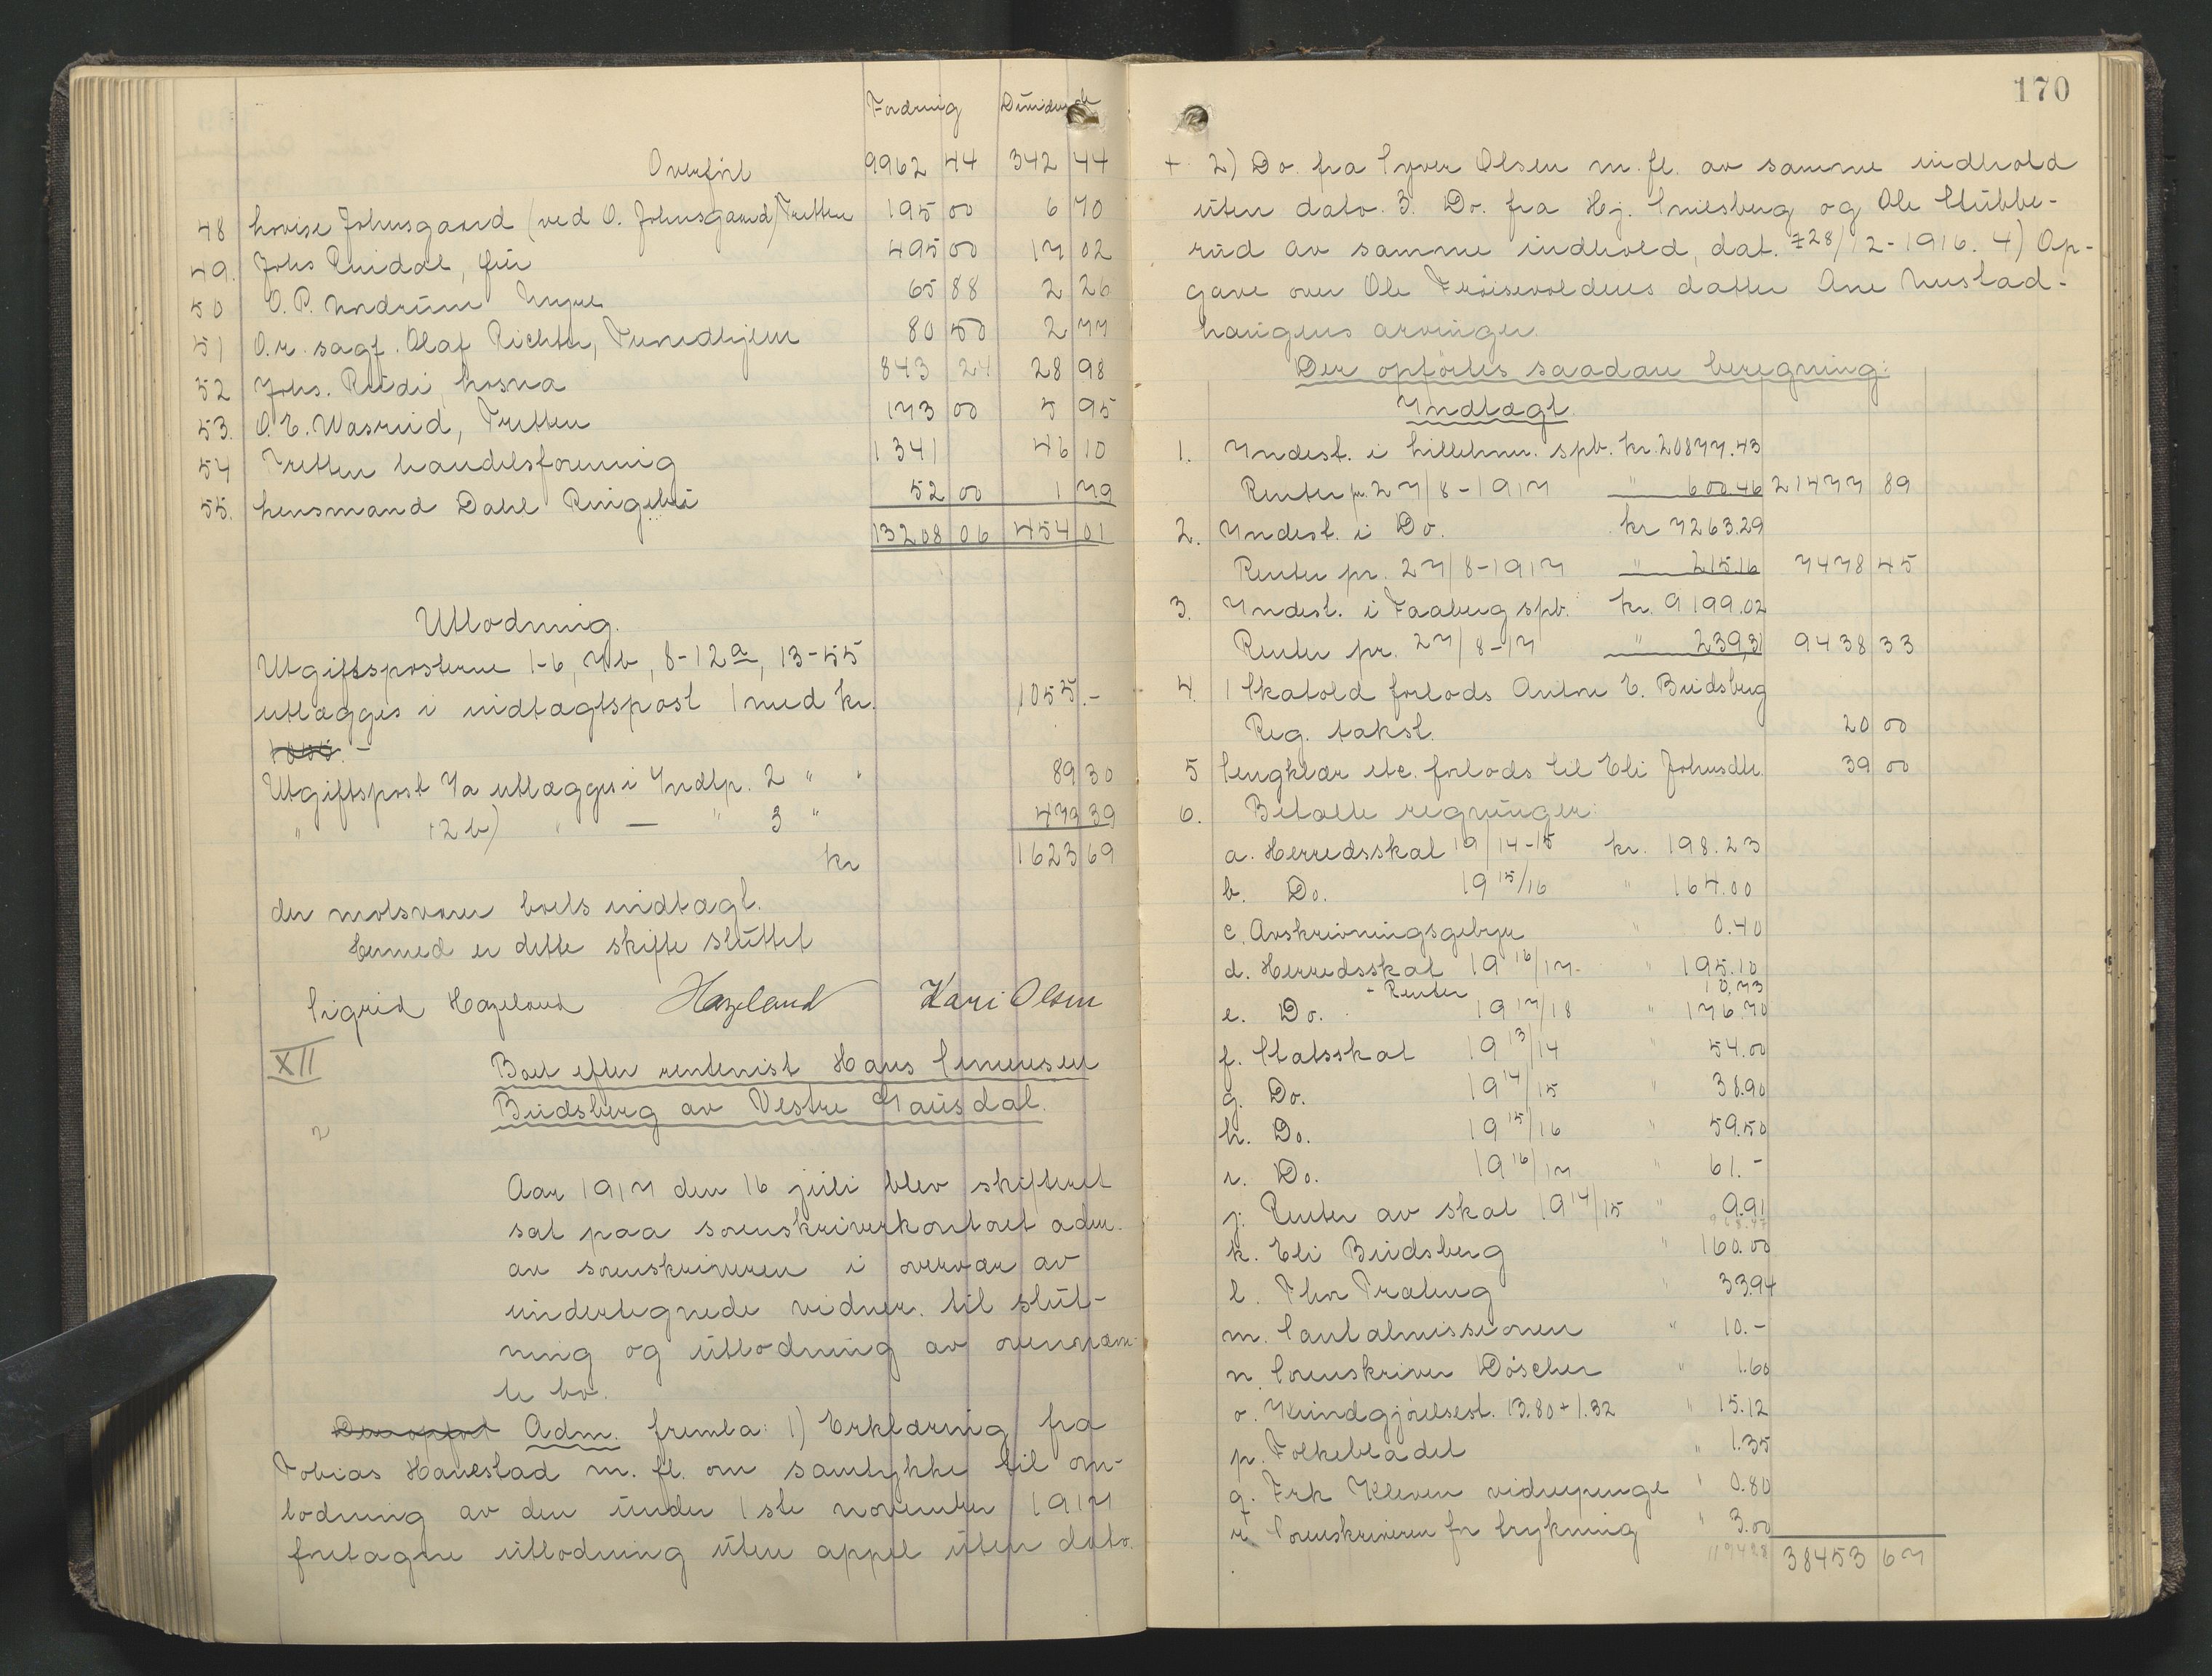 Fordring Dividende
Overført 9962 44 342 44
48 Lovise Johnsgaard (ved O. Johnsgaard) Tretten 195 00 6 70
49. Johs Ruidal, fur 495 00 17 02
50 O. P. Undrum 65 88 2 26
51 O.r. sagf. Olaf Richter, Trondhjem 80 50 2 77
52 Johs. Rudi, Losna 843 24 28 98
53. O. E. Wasrud, Tretten 173 00 5 95
54 Tretten handelsforening 1341 46 10
55. Lensmand Dahl Ringebu 52 00 1 79
13208 06 454 01
Utlodning.
Utgiftsposterne 1-6, 7b, 8-12a, 13-55
utlægges i indtægtspost 1 med kr. 1055.-
Utgiftspost 7a utlægges i Indtp. 2 " " 89 30
" 12 b) " — " 3 " 479 39
kr 1623 69
der motsvarer boets indtægt.
Hermed er dette skifte sluttet
Sigrid Hazeland Hazeland Kari Olsen
XII Boet efter rentenist Hans Simensen
Budsberg av Vestre Gausdal.
2
Aar 1917 den 16 juli blev skifteret
sat paa sorenskriverkontoret adm.
av sorenskriveren i overvær av
undertegnede vidner til slut-
ning og utlodning av ovennævn-
te bo.
Den opført Adm. fremla: 1) Erklæring fra
Tobias Hanestad m. fl. om samtykke til om-
lodning av den under 1ste november 1917
foretagne utlodning uten appel uten dato.
170
+ 2) Do. fra Syver Olsen m. fl. av samme indhold
uten dato. 3. Do. fra Hj. Sniesberg og Ole Stubbe-
rud av samme indhold, dat. 28/12-1916. 4) Op-
gave over Ole Frøisevoldens datter Ane Nustad-
haugens arvinger.
Der opførtes saadan beregning:
Indtægt
1. Indest. i Lillehmr. spb. kr. 20877.43
Renter pr. 27/8-1917 " 600.46 21477 89
2. Indest. i Do. kr 7263.29
Renter pr. 27/8-1917 " 215.16 7478 45
3. Indest. i Faaberg spb. kr. 9199.02
Renter pr. 27/8-17 " 239,31 9438 33
4. 1 Skatold forlods Anton E. Budsberg
Reg. takst. 20 00
5 Sengklær etc. forlods til Eli Johnsdtr. 39 00
6. Betalte regninger:
a. Herredsskat 19/14-15 kr. 198.23
b. Do. 19 15/16 " 164.00
c. Avskrivningsgebyr " 0.40
d. Herredsskat 19 16/17 - " 195.10
- Renter 10,73
e. Do. 19 17/18 " 176.70
f. Statsskat 19 13/14 54.00
g. Do. 19 14/15 " 38.90
h. Do. 19 15/16 " 59.50
i. Do. 19 16/17 " 61.-
j. Renter av skat 19 14/15 " 9.91
968.47
k. Eli Budsberg " 160.00
l. Thor Traberg " 33.94
m. Santalmissionen " 10.-
n. Sorenskriver Döscher " 1.60
o. Kundgjørelsest. 13.80 + 1.32 " 15.12
p. Folkebladet " 1.35
q. Frk Kleven vidnepenge " 0.80
r. Sorenskriveren for trykning " 3.00
119428 38453 67